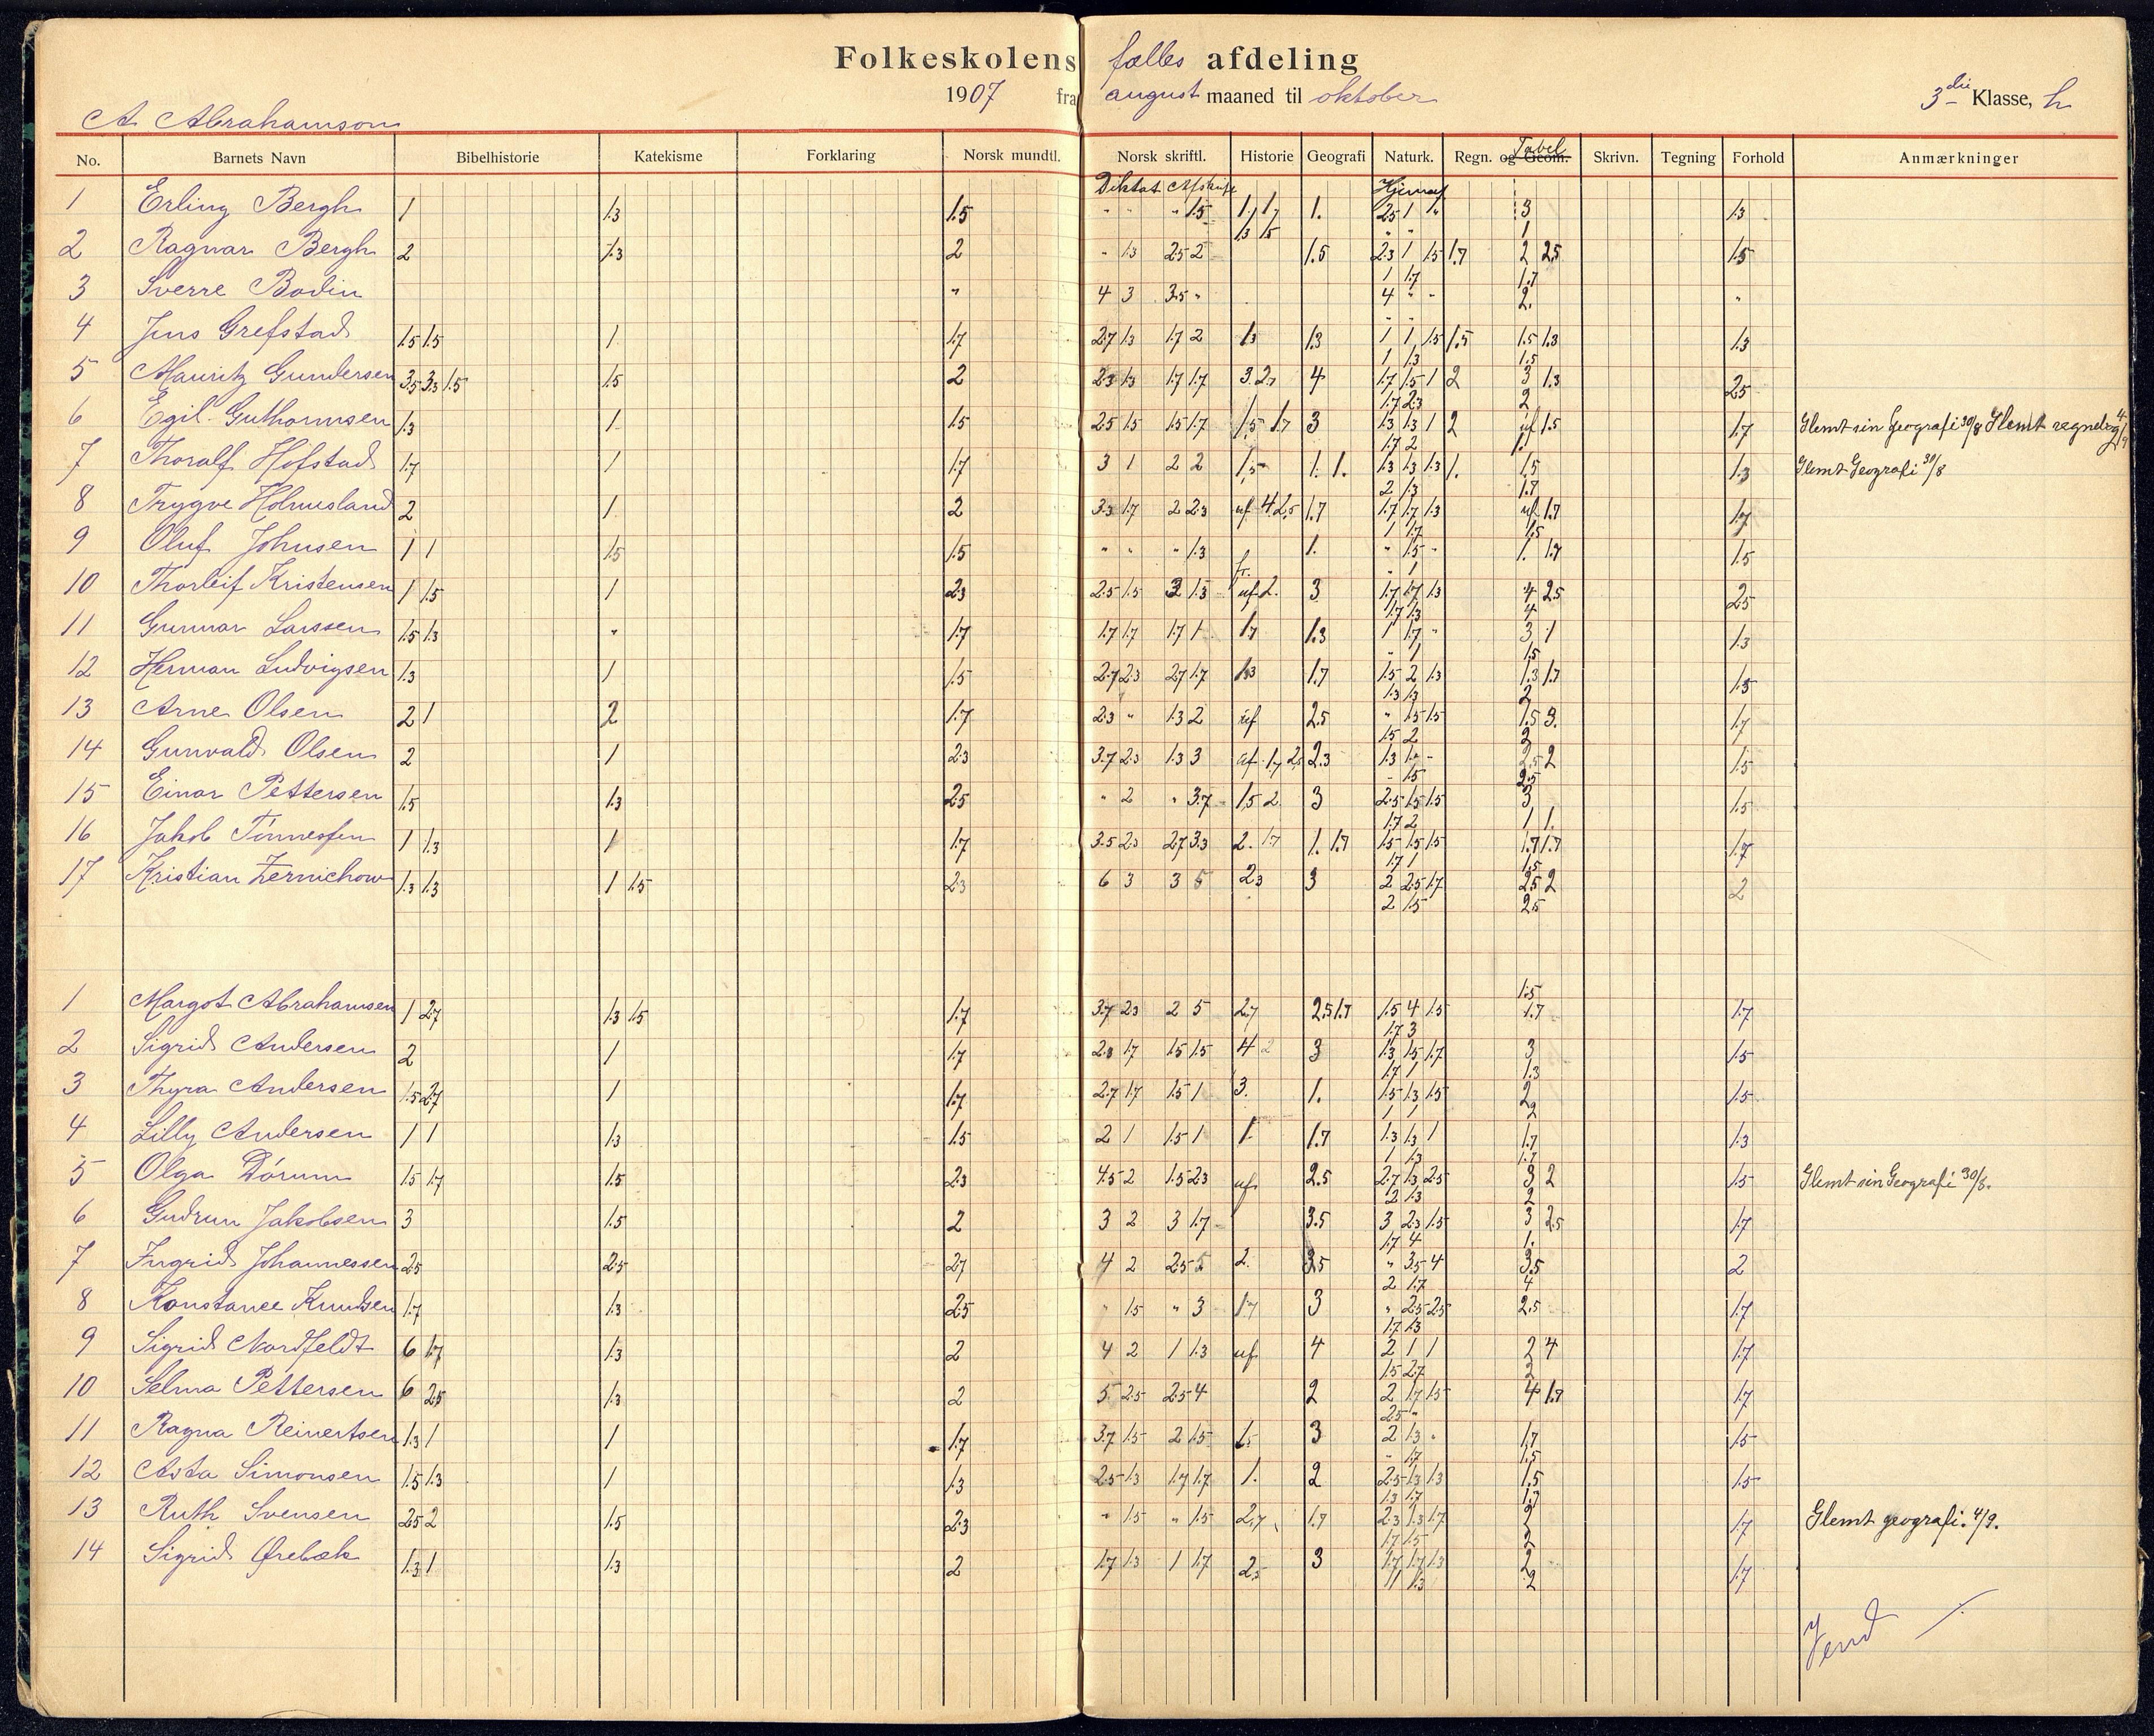 Folkeskolens fælles afdeling
1907 fra august maaned til oktober
3die Klasse, h
A Abrahamson
No. Barnets Navn Bibelhistorie Katekisme Forklaring Norsk mundtl. Norsk skriftl. Historie Geografi Naturk. Regn. og Geom. Tabel Skrivn. Tegning Forhold Anmærkninger
Diktat Afskrift
1 Erling Bergh 1 1.3 1.5 " " " 1.5 1.7 1.7 1. 2.5 1 " 3 1.3
1.3 1.5 " " 1
2 Ragnar Bergh 2 1.3 2 " 1.3 2.5 2 1.5 2.3 1 1.5 1.7 2 2.5 1.5
1 1.7 1.7
3 Sverre Bodin " 4 3 3.5 " 4 " " 2. "
4 Jens Grefstad 1.5 1.5 1 1.7 2.7 1.3 1.7 2 1.3 1.3 1 1 1.5 1.5 1.5 1.3 1.3
1 1.3 1.5
5 Mauritz Gundersen 3.5 3.3 1.5 1.5 2 2.3 1.3 1.7 1.7 3. 2.7 4 1.7 1.5 1 2 3 1.3 2.5
1.7 2.3 2
6 Egil Guthormsen 1.3 1 1.5 2.5 1.5 1.5 1.7 1.5 1.7 3 1.3 1.3 1 2 uf 1.5 1.7 Glemt sin Geografi 30/8 Glemt regnebog 4/9
1.7 2 1.
7 Thoralf Hofstad 1.7 1 1.7 3 1 2 2 1.5 1. 1. 1.3 1.3 1.3 1. 1.5 1.3 Glemt Geografi 30/8
2 1.3 1.7
8 Trygve Holmesland 2 1 2 3.3 1.7 2 2.3 uf 4 2.5 1.7 1.7 1.7 1.3 uf 1.7 1.7
1 1.7 1.5
9 Oluf Johnsen 1 1 1.5 1.5 " " " 1.3 1. " 1.5 " 1. 1.7 1.5
fr. " 1
10 Thorleif Kristensen 1 1.5 1 2.3 2.5 1.5 3 1.3 uf 2. 3 1.7 1.7 1.3 4 2.5 2.5
1.7 1.3 4
11 Gunnar Larssen 1.5 1.3 " 1.7 1.7 1.7 1.7 1 1.7 1.3 1 1.7 " 3 1 1.3
" 1 1.5
12 Herman Ludvigsen 1.3 1 1.5 2.7 2.3 2.7 1.7 1.7 1.5 2 1.3 1.3 1.7 1.5
1.3 1.3 2
13 Arne Olsen 2 1 2 1.7 2.3 " 1.3 2 uf 2.5 " 1.5 1.5 1.5 3. 1.7
1.5 2 2
14 Gunvald Olsen 2 1 2.3 3.7 2.3 1.3 3 uf 1.7 2.5 2.3 1.3 1. " 2.5 2 1.5
" 1.5 2.5
15 Einar Pettersen 1.5 1.3 2.5 " 2 " 3.7 1.5 2 3 2.5 1.5 1.5 3 1.5
1.7 2 1 1.
16 Jakob Tönnessen 1 1.3 1 1.7 3.5 2.3 2.7 3.3 2. 1.7 1. 1.7 1.5 1.5 1.5 1.7 1.7 1.7
1.7 1 1.5
17 Kristian Zernichow 1.3 1.3 1 1.5 2.3 6 3 3 5 2.3 3 2 2.5 1.7 2.5 2 2
2 1.5 2.5
1.5
1 Margot Abrahamsen 1 2.7 1.3 1.5 1.7 3.7 2.3 2 5 2.7 2.5 1.7 1.5 4 1.5 1.7 1.7
1.7 3
2 Sigrid Andersen 2 1 1.7 2.3 1.7 1.5 1.5 4 2 3 1.3 1.5 1.7 3 1.5
1.7 1 1.3
3 Thyra Andersen 1.5 2.7 1 1.7 2.7 1.7 1.5 1 3. 1. 1.5 1.3 1.5 2 1.5
1 1 2
4 Lilly Andersen 1 1 1.3 1.5 2 1 1.5 1 1. 1.7 1.3 1.3 1 1.7 1.3
1 1.3 1.7
5 Olga Dórum 1.5 1.7 1.5 2.3 4.5 2 1.5 2.3 uf 2.5 2.7 1.3 2.5 3 2 1.5 Glemt sin Geografi 30/8.
2 1.3 2
6 Gudrun Jakobsen 3 1.5 2 3 2 3 1.7 3.5 3 2.3 1.5 3 2.5 1.7
1.7 4 1.
7 Ingrid Johannessen 2.5 2.5 2.7 4 2 2.5 5 2. 3.5 " 3.5 4 3.5 2
2 1.7 4
8 Konstance Knudsen 1.7 1.3 2.5 " 1.5 " 3 1.7 3 " 2.5 2.5 2.5 1.7
1.7 1.3
9 Sigrid Nordfeldt 6 1.7 1.3 2 4 2 1 1.3 uf 4 2 1 1 2 4 1.7
1.5 2.7 2
10 Selma Pettersen 6 2.5 1.3 2 5 2.5 2.5 4 2 2 1.7 1.5 4 1.7 1.7
2.5 "
11 Ragna Reinertsen 1.3 1 1 1.7 3.7 1.5 2 1.5 1.5 3 2 1.3 " 1.7 1.5
" 1.7 1.5
12 Asta Simonsen 1.5 1.3 1 1.3 2.5 1.3 1.7 1.7 1. 2 2.5 1.3 1.3 1.5 1.5
1.3 1.7 1.7
13 Ruth Svensen 2.5 2 1.5 2.3 " 1.5 " 1.5 2.7 1.7 2.3 1.3 1.7 2 1.7 Glemt geografi. 4/9.
1.7 1.5 2
14 Sigrid Ørebæk 1.3 1 1.3 2 1.7 1.3 1 1.7 2.5 3 1.7 1.7 1.3 2 1.7
1 1 1.3 2